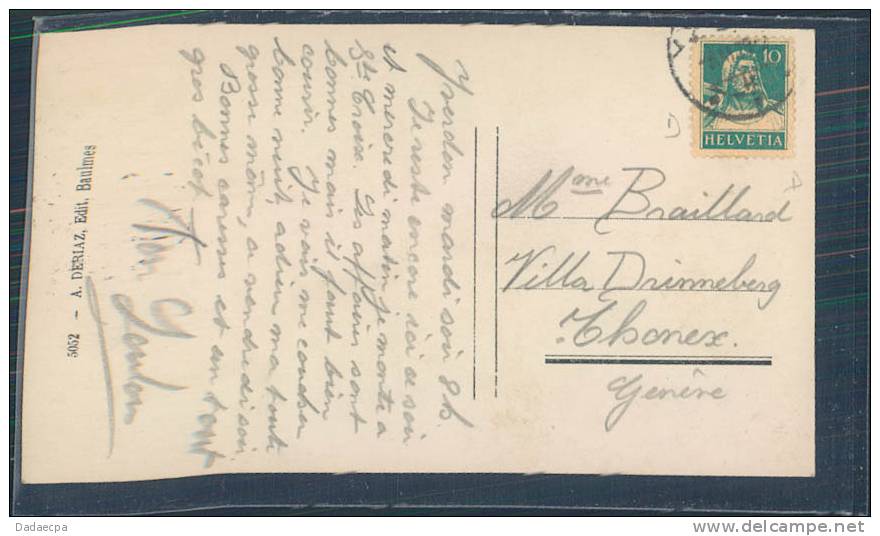 Yverdon mardi soir 8h.
Je reste encore ici ce soir
et mercredi matin je monte a
Ste Croix. Les affaires sont
bonnes mais il faut bien
courir. Je vais me coucher
bonne nuit adieu ma toute
grosse môm, a vendredi soir
Bonnes caresses et un tout
gros bécot
Ton Loulou
5052 - A. DERIAZ, Edit, Baulmes
10
HELVETIA
Mme Braillard
Villa Drinneberg
Thonex.
Genève
Dadaecpa
www.delcampe.net